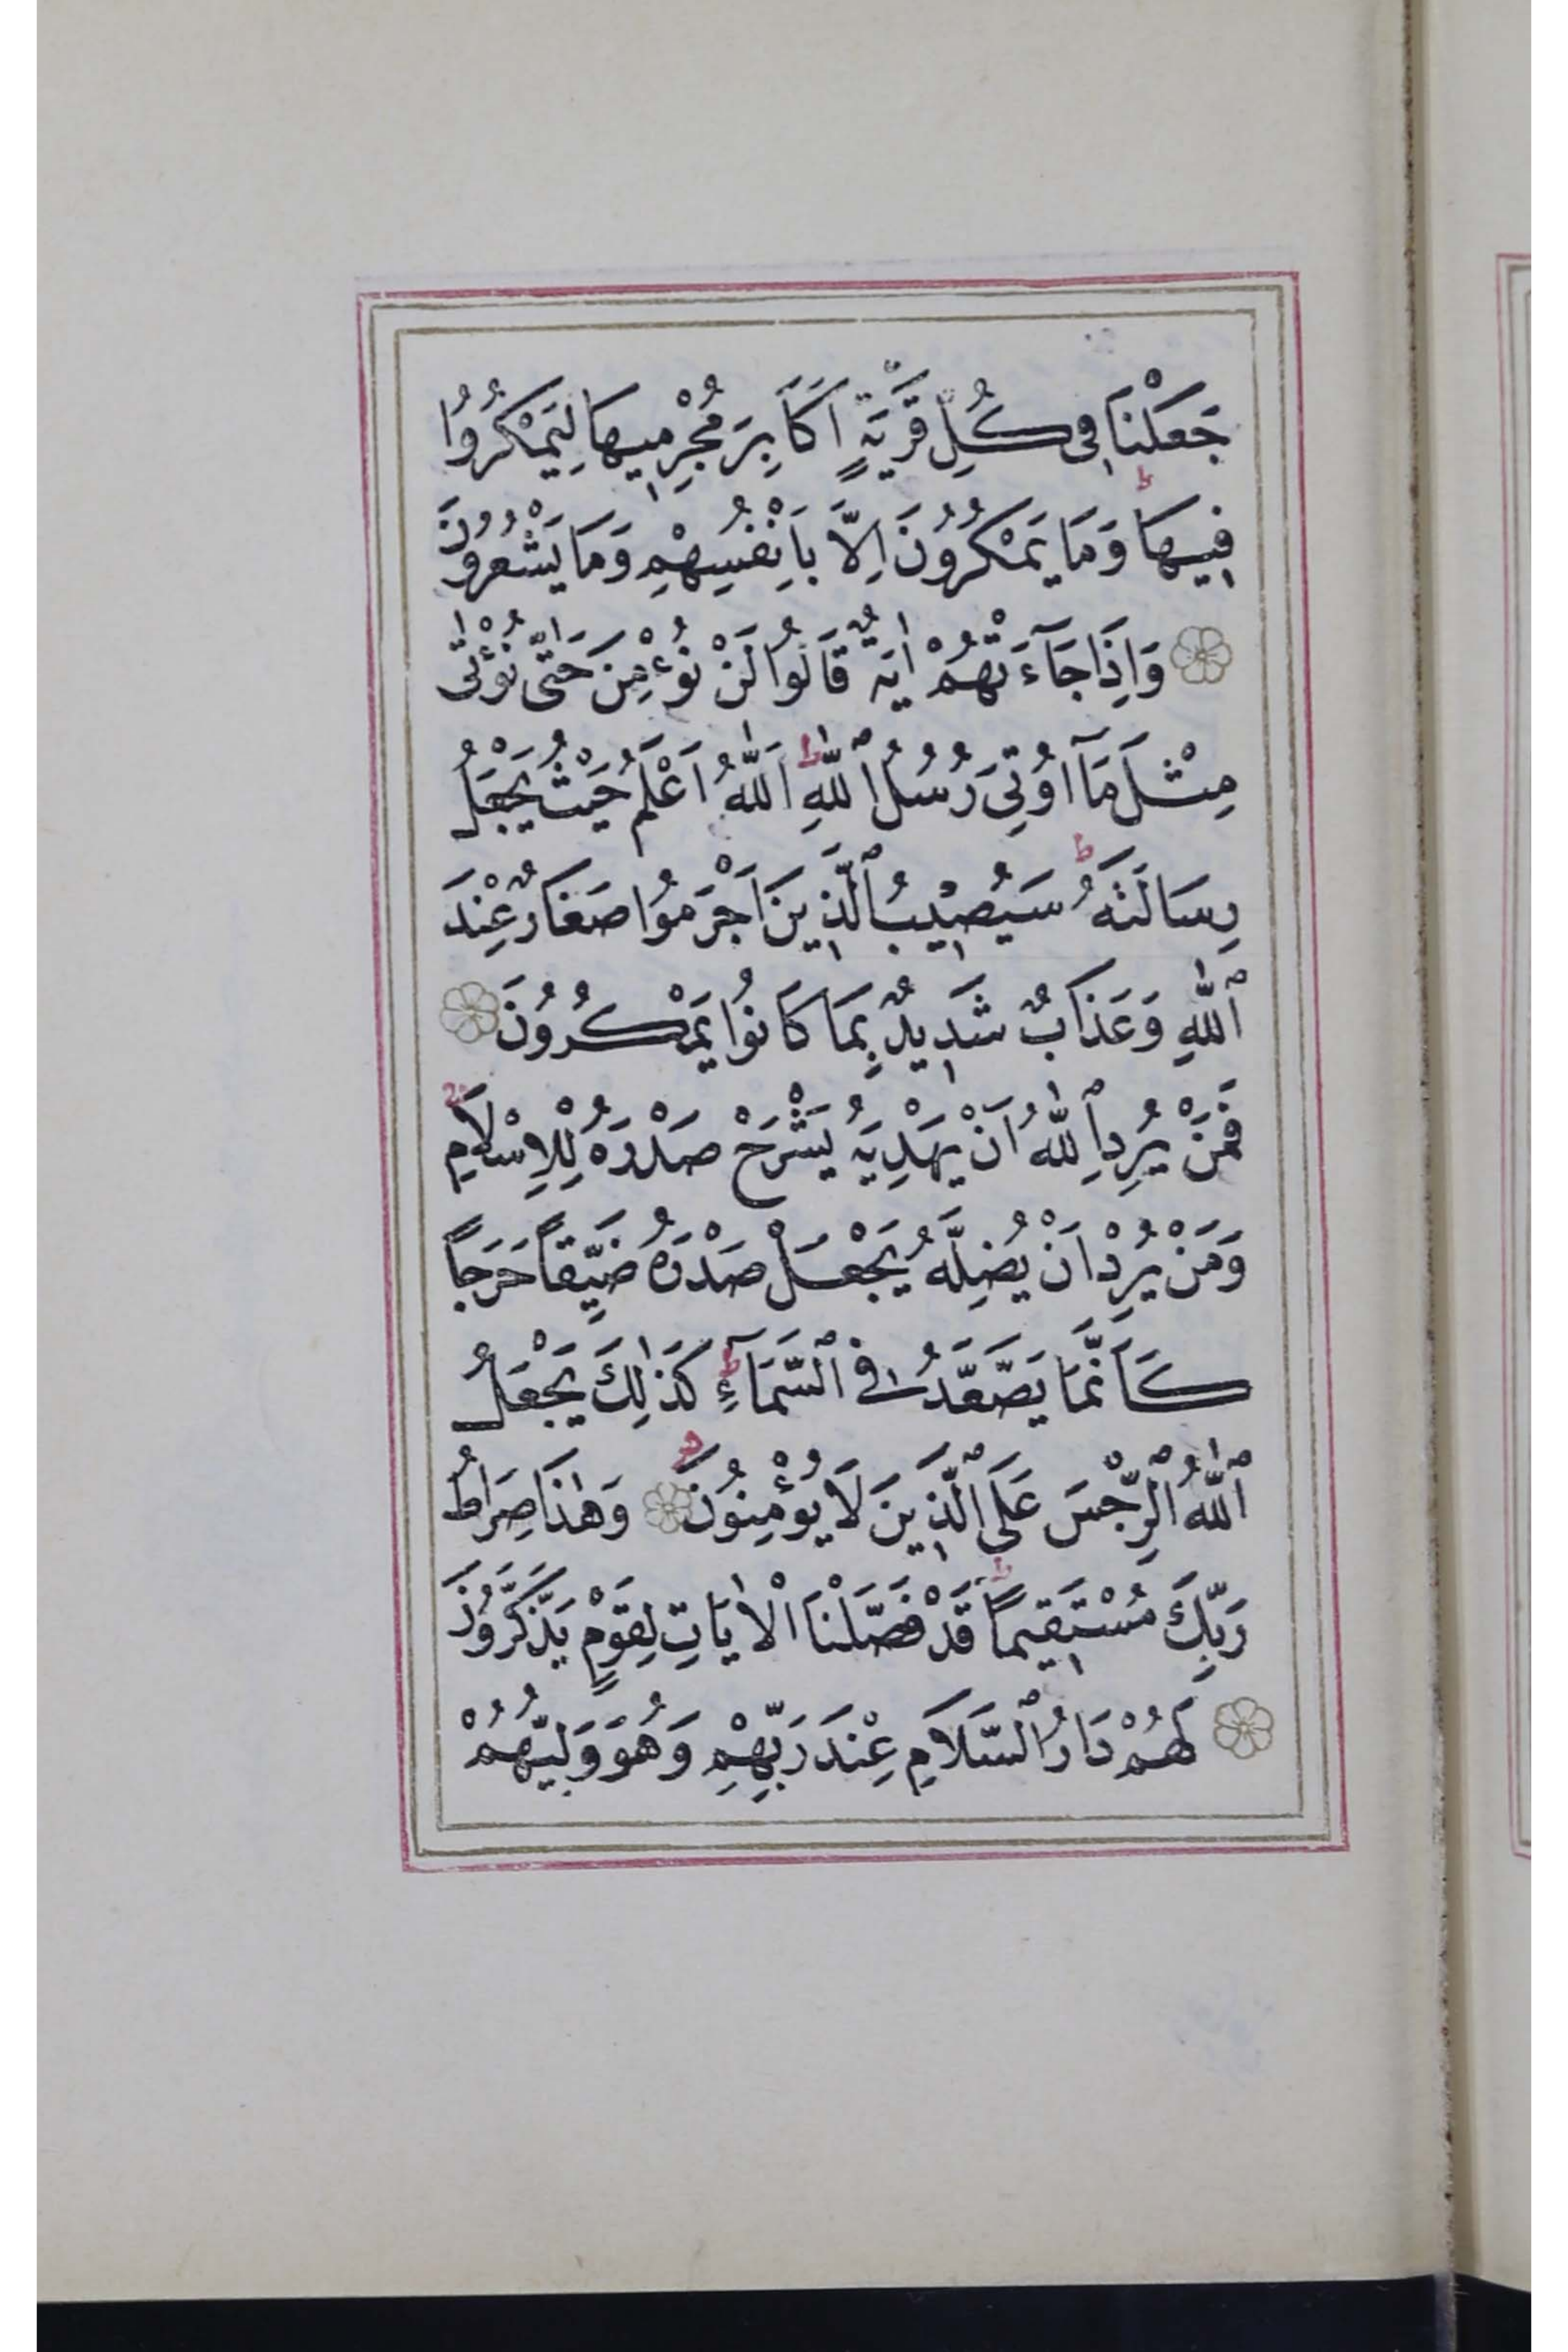 جَعَلْنَا فِى كُلِّ قَرْيَةٍ اَكَابِرَ مُجْرِمِيهَا لِيَمْكُرُوا
فِيهَا ۭ وَمَا يَمْكُرُونَ اِلَّا بِاَنْفُسِهِمْ وَمَا يَشْعُرُونَ
وَاِذَا جَآءَتْهُمْ اٰيَةٌ قَالُوا لَنْ نُؤْمِنَ حَتّٰى نُؤْتٰى
مِثْلَ مَآ اُوتِىَ رُسُلُ ٱللّٰهِ ؕ اَللّٰهُ اَعْلَمُ حَيْثُ يَجْعَلُ
رِسَالَتَهُ ؕ سَيُصِيبُ ٱلَّذِينَ اَجْرَمُوا صَغَارٌ عِنْدَ
ٱللّٰهِ وَعَذَابٌ شَدِيدٌ بِمَا كَانُوا يَمْكُرُونَ
فَمَنْ يُرِدِ ٱللّٰهُ اَنْ يَهْدِيَهُ يَشْرَحْ صَدْرَهُ لِلْاِسْلَامِ ۚ
وَمَنْ يُرِدْ اَنْ يُضِلَّهُ يَجْعَلْ صَدْرَهُ ضَيِّقاً حَرَجاً
كَاَنَّمَا يَصَّعَّدُ فِى ٱلسَّمَآءِ ؕ كَذٰلِكَ يَجْعَلُ
ٱللّٰهُ ٱلرِّجْسَ عَلَى ٱلَّذِينَ لَا يُؤْمِنُونَ وَهٰذَا صِرَاطُ
رَبِّكَ مُسْتَقِيماً ؕ قَدْ فَصَّلْنَا الْاٰيَاتِ لِقَوْمٍ يَذَّكَّرُونَ
لَهُمْ دَارُ ٱلسَّلَامِ عِنْدَ رَبِّهِمْ وَهُوَ وَلِيُّهُمْ